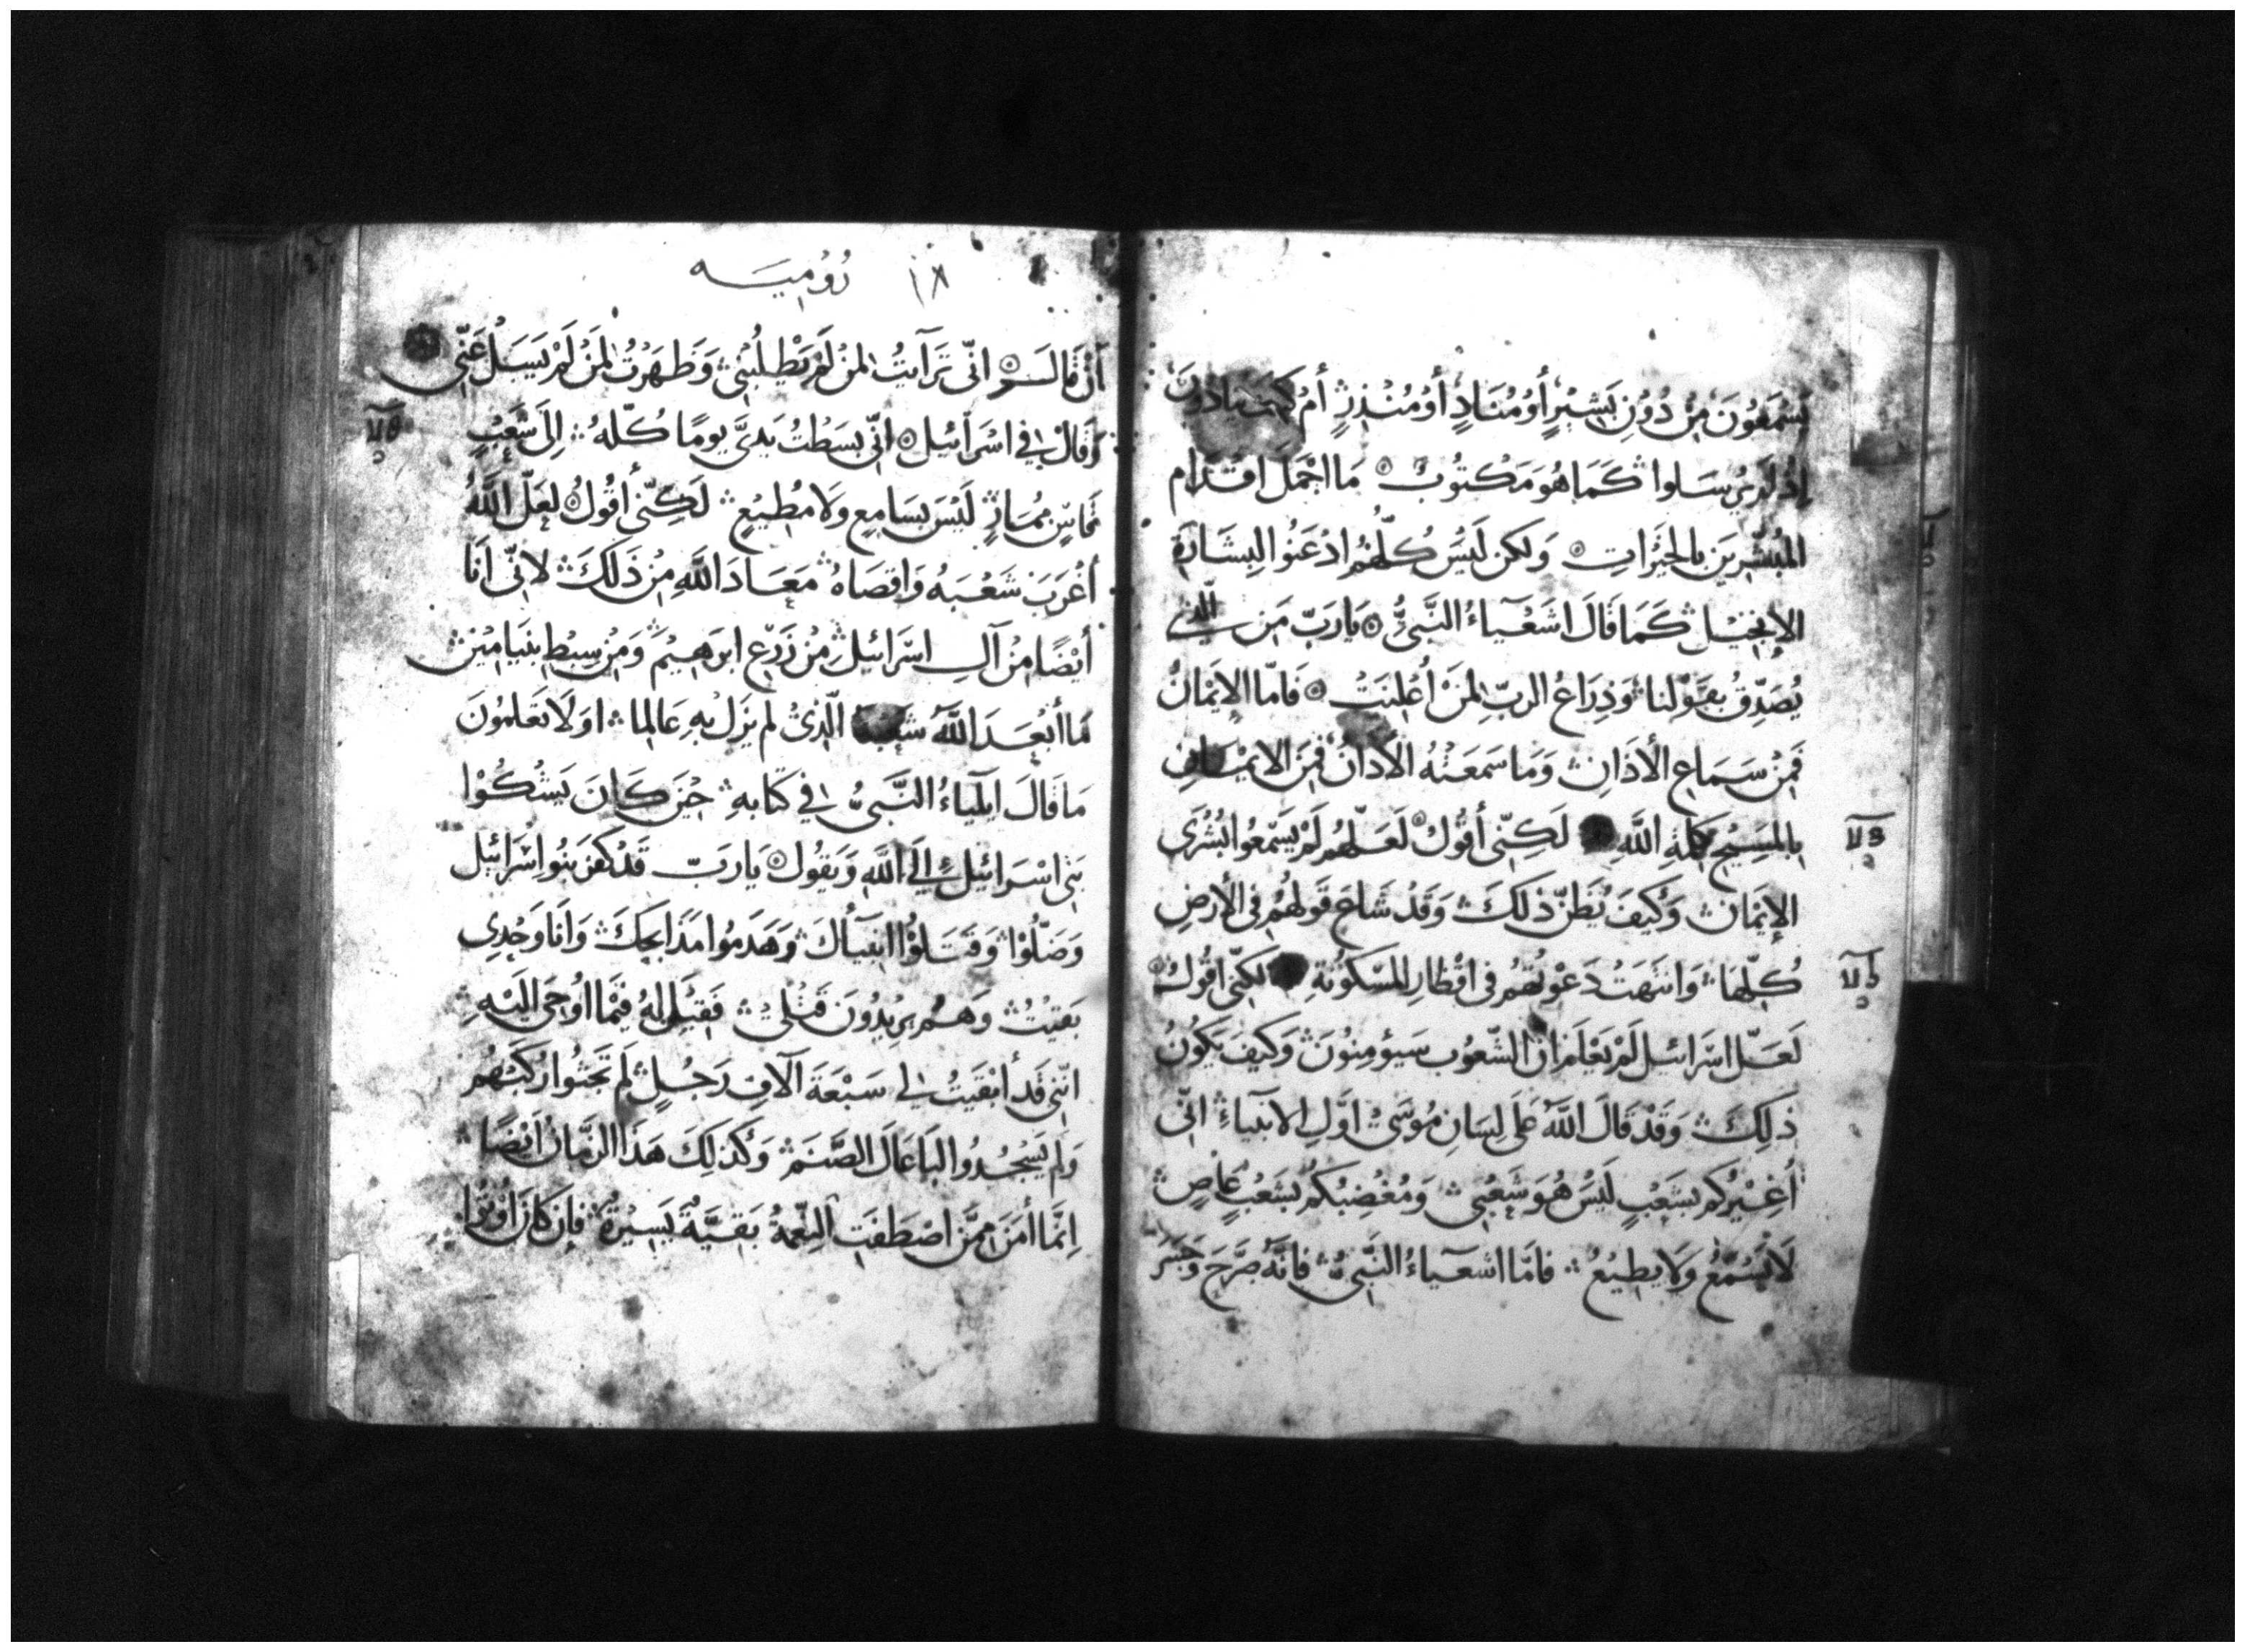 يَسْمَعُونَ مِنْ دُوْنِ بَشِيْرٍ أَوْ مُنَادٍ أَوْ مُنْذِرٍ أَمْ كَيفَ ينادُونَ
إِذْ لَم يُرْسَلوا كَمَا هُوَ مَكتُوبٌ مَا اجْمَلَ اقْدَام
المُبَشِّرِينَ بالخَيْرَاتِ وَلكن لَيْسَ كُلّهُمْ اذْعَنُوا لِبِشَارَةِ
الإِنجِيْلِ كَمَا قَالَ اشَعْيَآءُ النَّبِيُّ يَارَبّ مَن الّذِي
يُصَدِّقُ بِقَوْلِنا وَذِرَاعُ الربّ لِمَنْ أُعْلِنَتْ فَامّا الإِيْمَانُ
فَمِنْ سَمَاعِ الأَذَانِ وَمَا سَمَعَتْهُ الأَذانُ فَمِنَ الايْمَانِ
بِالمَسِيْحِ كَلِمَةِ اللَّهِ لَكِنّي أَقُوْلُ لَعَلّهُمْ لَمْ يَسْتَمِعُوا بُشْرَى
الإِيْمَانِ وَكَيفَ يُظَنّ ذلكَ وَقَدْ شَاعَ قَولهُمْ فِي الأَرضِ
كُلّهَا وَانتَهَتْ دَعْوتُهُمْ فِي اقْطَارِ المَسْكُوْنَةِ لَكِنّي اقُوْلُ
لَعَلّ اسْرَائيل لَمْ يَعْلَمْ انّ الشّعُوْب سَيُؤمِنُونَ وَكَيفَ يَكُوْنُ
ذَلِكَ وَقَدْ قَالَ اللَّهُ عَلَى لِسَانِ مُوْسَى اوَّلِ الانبيَاءِ انّي
أُغِيْرُكُم بِشَعْبٍ لَيْسَ هُوَ شَعْبِي وَمُغْضِبُكُمْ بِشَعْبٍ عَاصٍ
لَا يَسْمَعُ وَلَا يُطِيْعُ فَامّا اشَعْيَاءُ النَّبِيُّ فَإنّهُ صَرَّحَ وَجَسَرَ
١٨ رُوْمِيَه
أَنْ قَالَ انّي تَرَآيْتُ لِمَنْ لَمْ يَطْلُبْنِي وَظَهَرْتُ لِمَنْ لَمْ يَسَلْ عَنّي
وَقَالَ في اسْرَآئِيل انّي بسَطْتُ يَدَيَّ يومًا كُلّهُ إِلَى شَعْبٍ
مُمَارٍ لَيْسَ بِسَامِعٍ وَلَا مُطِيْعٍ لَكِنّي أَقُوْلُ لَعَلّ اللَّهَ
أَغْرَبَ شَعْبَهُ وَاقصَاهُ مَعَاذَ اللَّهِ مِنْ ذَلكَ لانّي أَنَا
أَيْضًا مِنْ آلِ اسْرَائيل مِنْ زَرْعِ ابرَهِيْمَ وَمِنْ سِبْطِ بنيَامِيْنَ
مَا أَبْعَدَ اللَّهُ شعبه الّذِيْ لم يَزَلْ بِهِ عَالِمًا اوَلَا تَعْلَمُوْنَ
مَا قَالَ ايليَاءُ النَّبِيُّ في كتَابِهِ حِيْنَ كَانَ يَشْكُوْا
بَنِي اسْرَائِيْلَ إِلَى اللَّهِ وَيَقُولُ يَا رَبّ قَدْ كَفَرَ بَنُوا إِسْرَائِيل
وَضَلّوْا وَقَتَلوْا انبيَآكَ وَهَدَمُوا مَذَابِحَكَ وَانَا وَحْدِي
بَقيْتُ وَهُم يُرِيدُونَ قَتْلِي فَقِيْلَ لَهُ فِيْمَا اوُحِيَ الَيْهِ
انّني قَد أَبْقَيْتُ لي سَبْعَةَ آلَافِ رَجُلٍ لَم تَجْثُوا رُكَبُهُم
وَلَم يَسْجُدُوا لبَاعَالَ الصَّنَمِ وَكَذلِكَ هَذَا الزّمَان أَيْضًا
إِنّمَا أَمَنَ مِمّن اصْطَفَتِ النِّعْمَةُ بَقيَّةٌ يَسِيْرَةٌ فإن كَانَ أُوْثِرُوا